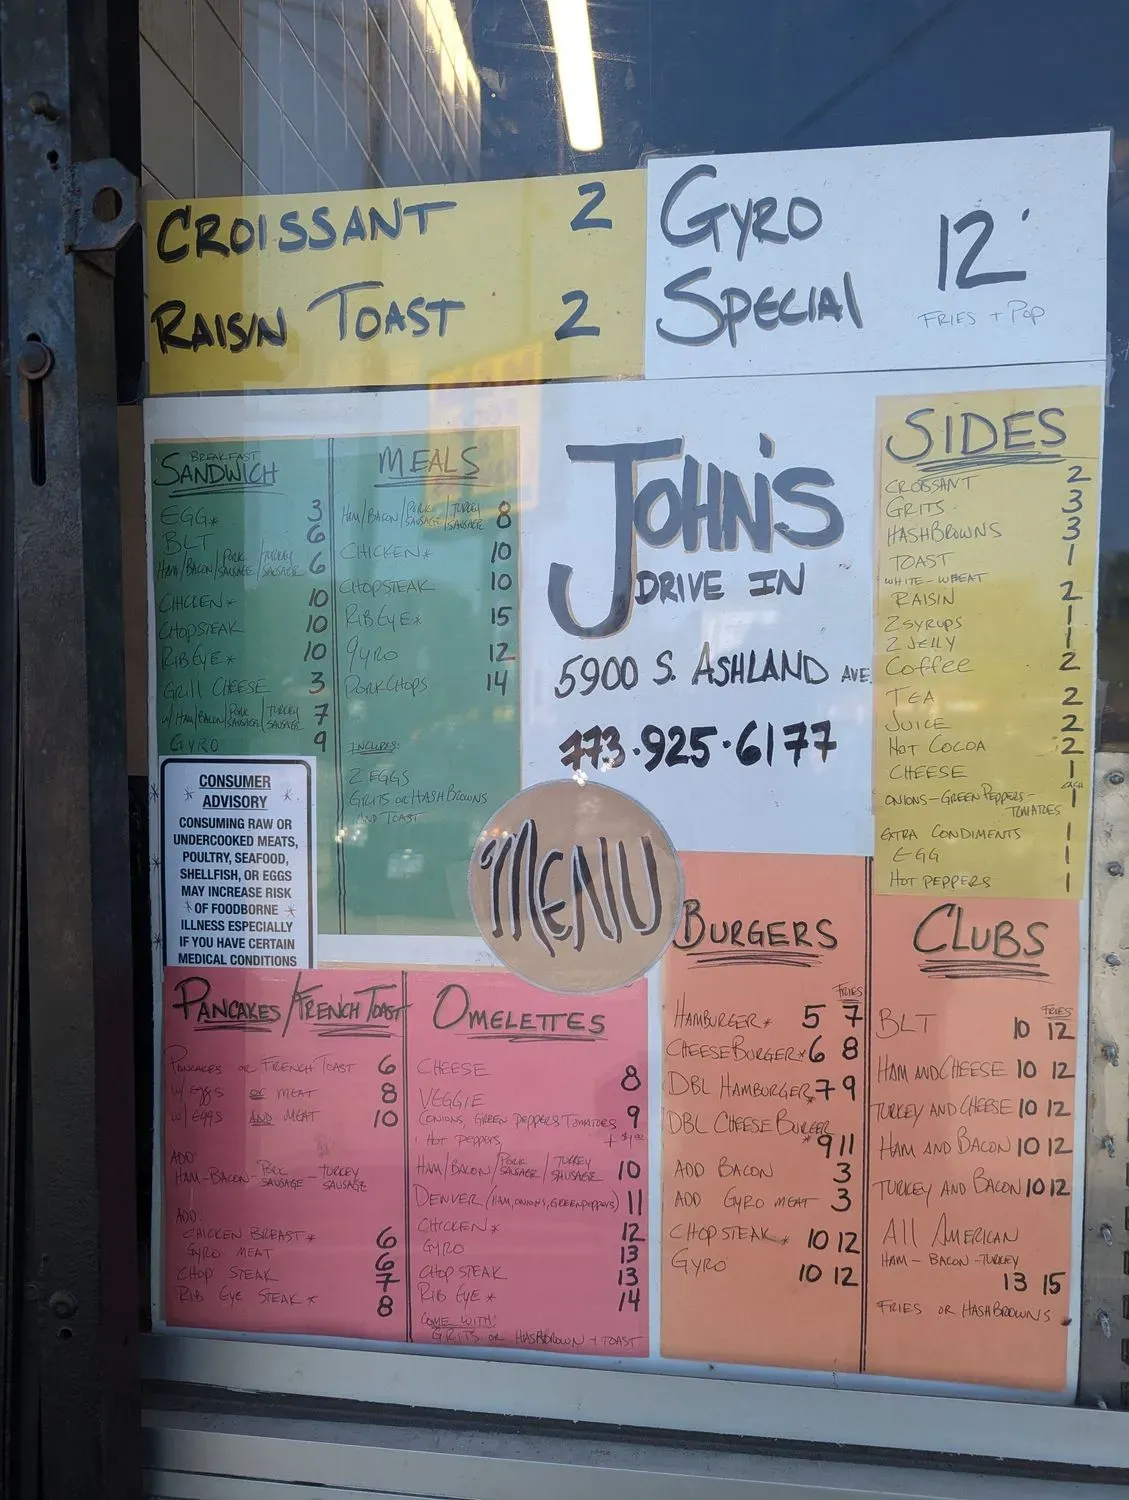 CROISSANT 2
RAISIN TOAST 2
GYRO SPECIAL 12
FRIES + POP
JOHN'S
DRIVE IN
5900 S. ASHLAND AVE.
773·925·6177
MENU
BREAKFAST
SANDWICH
EGG* 3
BLT 6
HAM/BACON/PORK SAUSAGE/TURKEY SAUSAGE 6
CHICKEN* 10
CHOPSTEAK 10
RIBEYE* 10
GRILL CHEESE 3
W/HAM/BACON/PORK SAUSAGE/TURKEY SAUSAGE 7
GYRO 9
MEALS
HAM/BACON/PORK SAUSAGE/TURKEY SAUSAGE 8
CHICKEN* 10
CHOPSTEAK 10
RIBEYE* 15
GYRO 12
PORKCHOPS 14
INCLUDES:
2 EGGS
GRITS OR HASHBROWNS
AND TOAST
CONSUMER
ADVISORY
CONSUMING RAW OR
UNDERCOOKED MEATS,
POULTRY, SEAFOOD,
SHELLFISH, OR EGGS
MAY INCREASE RISK
OF FOODBORNE
ILLNESS ESPECIALLY
IF YOU HAVE CERTAIN
MEDICAL CONDITIONS
SIDES
CROISSANT 2
GRITS 3
HASHBROWNS 3
TOAST 1
WHITE-WHEAT
RAISIN 2
2 SYRUPS 1
2 JELLY 1
COFFEE 2
TEA 2
JUICE 2
HOT COCOA 2
CHEESE 1
EACH
ONIONS-GREEN PEPPERS- 1
TOMATOES
EXTRA CONDIMENTS 1
EGG 1
HOT PEPPERS 1
PANCAKES/FRENCH TOAST
PANCAKES OR FRENCH TOAST 6
W/ EGGS OR MEAT 8
W/ EGGS AND MEAT 10
ADD
HAM-BACON-PORK SAUSAGE-TURKEY SAUSAGE
ADD
CHICKEN BREAST* 6
GYRO MEAT 6
CHOP STEAK 7
RIB EYE STEAK* 8
OMELETTES
CHEESE 8
VEGGIE 9
(ONIONS, GREEN PEPPERS TOMATOES
HOT PEPPERS, + $1.00
HAM/BACON/PORK SAUSAGE/TURKEY SAUSAGE 10
DENVER (HAM, ONIONS, GREENPEPPERS) 11
CHICKEN* 12
GYRO 13
CHOP STEAK 13
RIB EYE* 14
COME WITH:
GRITS OR HASHBROWN + TOAST
BURGERS
FRIES
HAMBURGER* 5 7
CHEESEBURGER* 6 8
DBL HAMBURGER* 7 9
DBL CHEESE BURGER
* 9 11
ADD BACON 3
ADD GYRO MEAT 3
CHOP STEAK* 10 12
GYRO 10 12
CLUBS
FRIES
BLT 10 12
HAM AND CHEESE 10 12
TURKEY AND CHEESE 10 12
HAM AND BACON 10 12
TURKEY AND BACON 10 12
ALL AMERICAN
HAM-BACON-TURKEY
13 15
FRIES OR HASHBROWNS